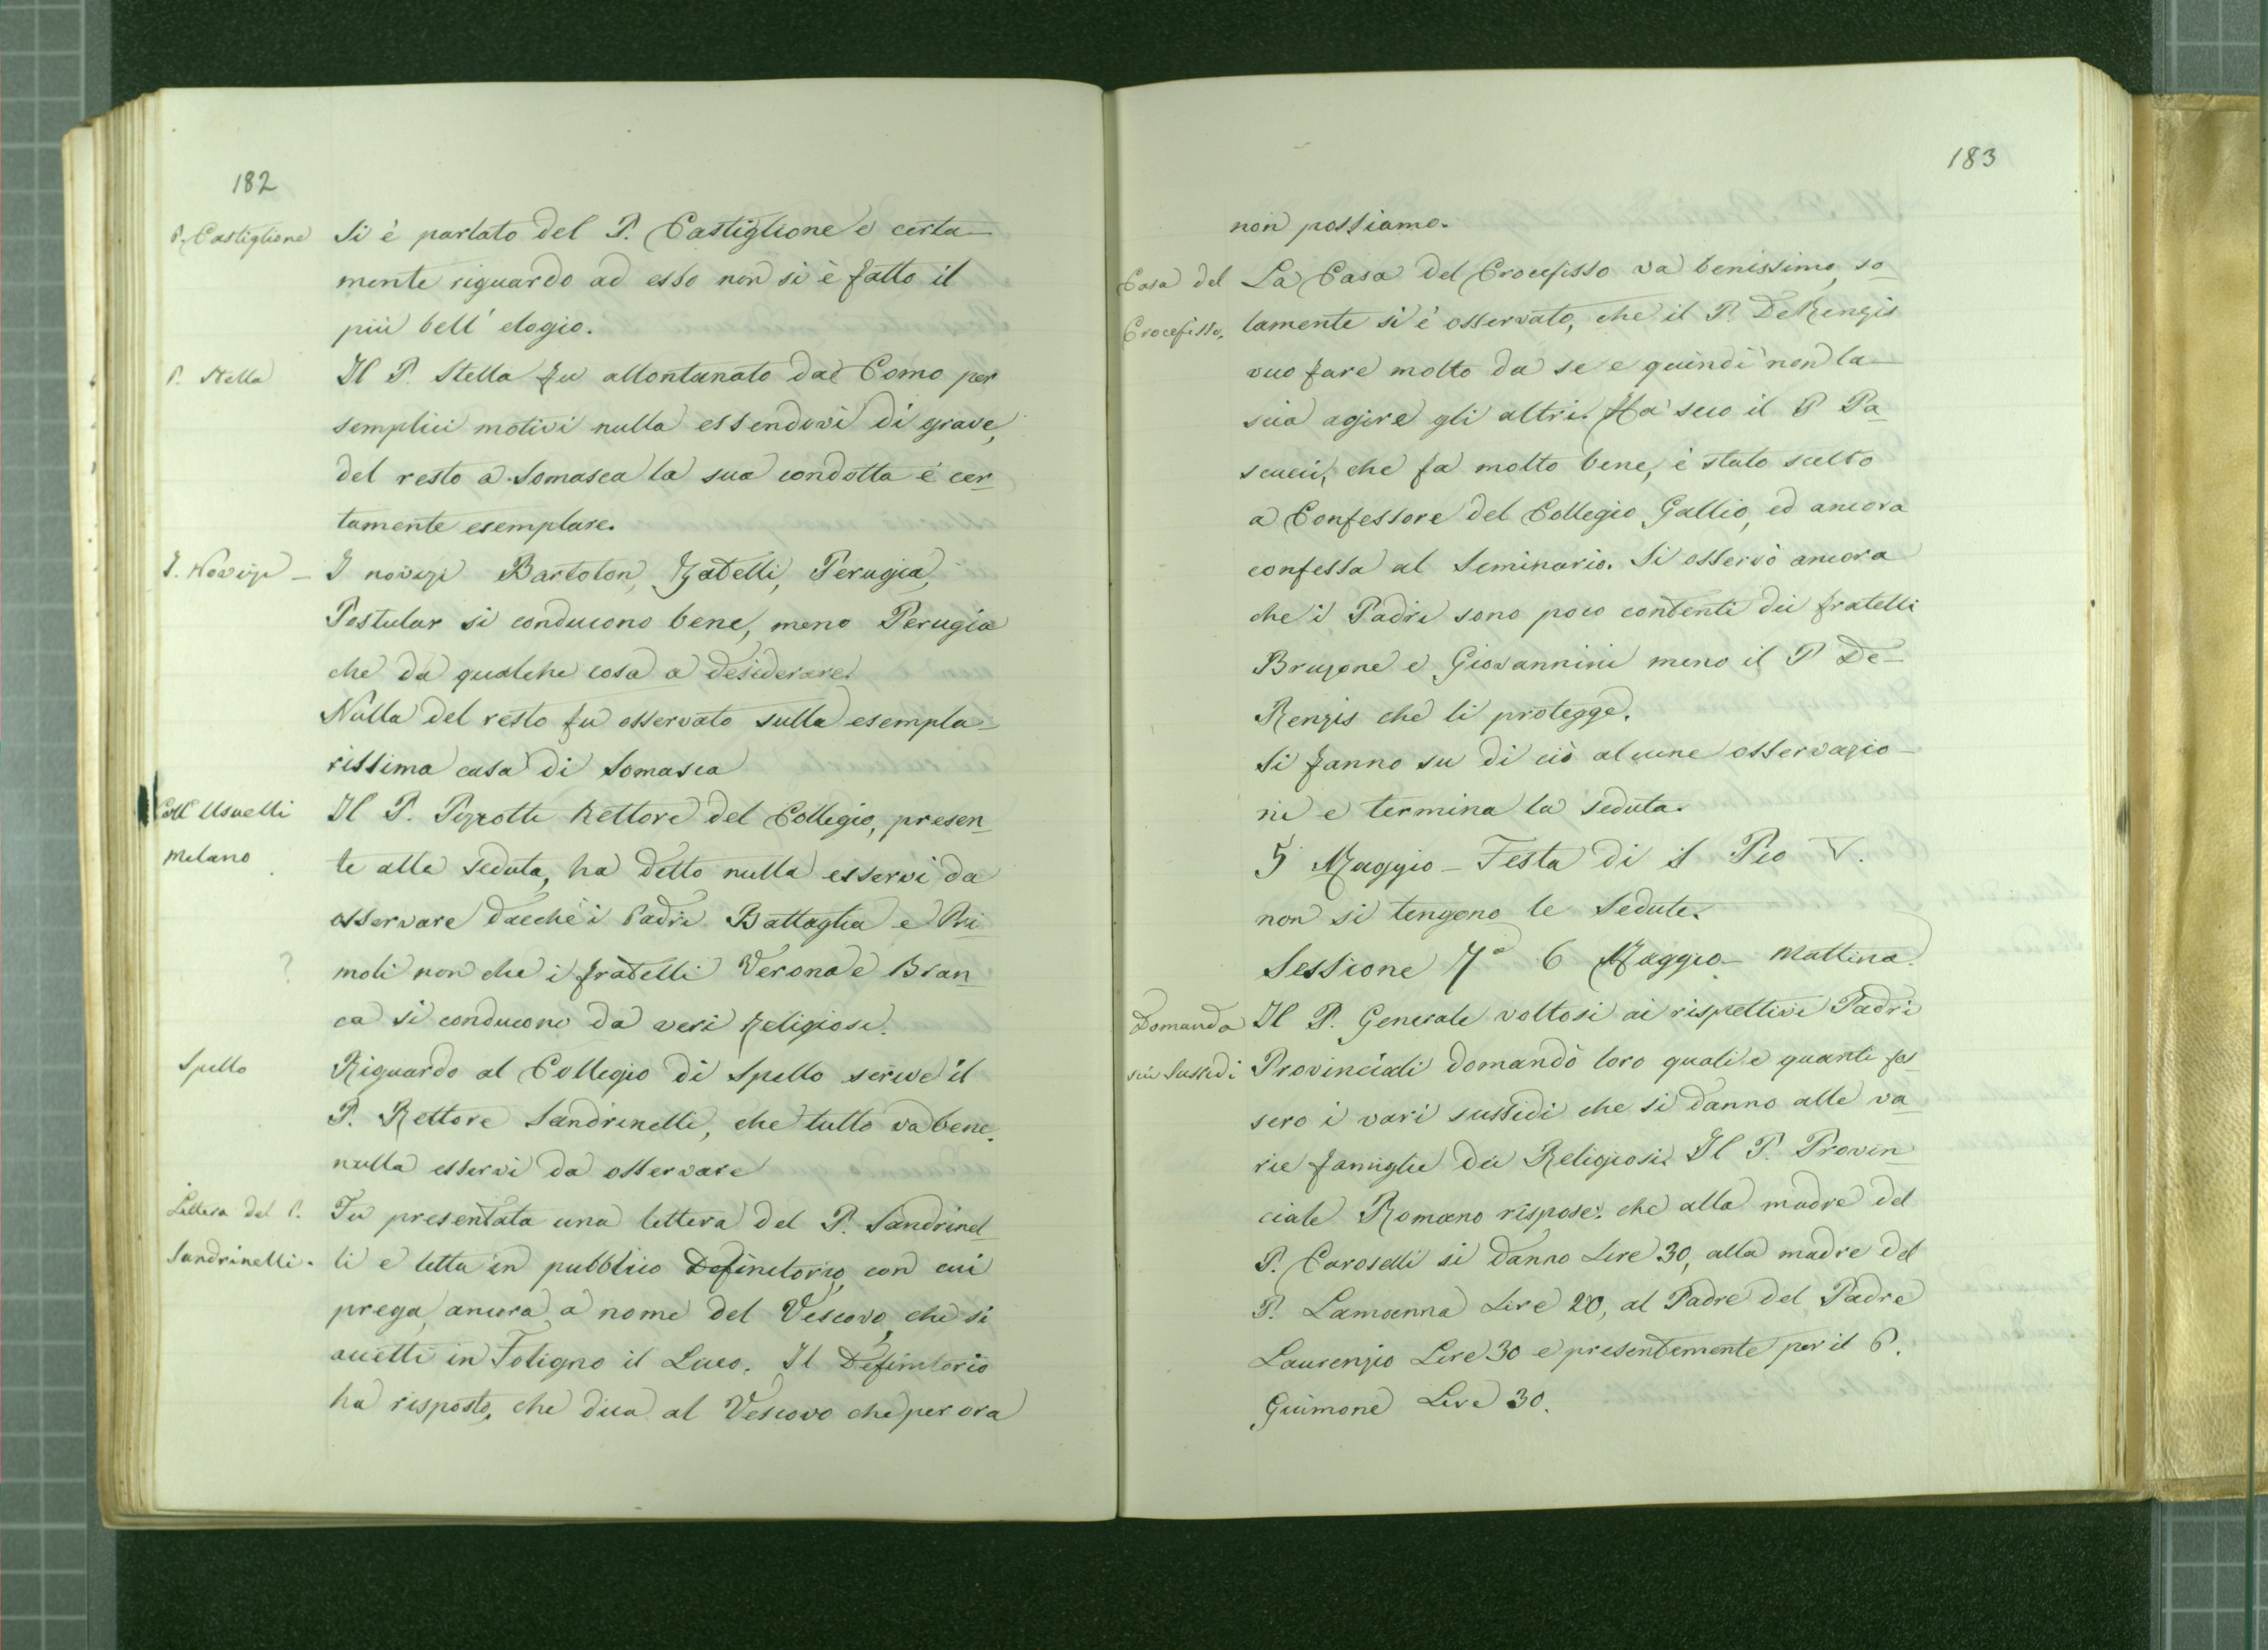 182
P. Castiglione Si è parlato del P. Castiglione e certa-
mente riguardo ad esso non si è fatto il
più bell' elogio.
P. Stella Il P. Stella fu allontanato dal Como per
semplici motivi nulla essendovi di grave,
del resto a Somasca la sua condotta è cer-
tamente esemplare.
I. Novizi - I novizi Bartolon, Zatelli, Perugia,
Postular si conducono bene, meno Perugia
che dà qualche cosa a desiderare.
Nulla del resto fu osservato sulla esempla-
rissima casa di Somasca
Coll Usuelli Il P. Pizzotti Rettore del Collegio, presen-
Milano te alla seduta, ha detto nulla esservi da
osservare dacchè i Padri Battaglia e Pri-
? moli non che i fratelli Verona e Bran-
ca si conducono da veri Religiosi.
Spello Riguardo al Collegio di Spello scrive il
P. Rettore Sandrinelli, che tutto va bene.
nulla esservi da osservare
Lettera del P. Fu presentata una lettera del P. Sandrinel-
Sandrinelli. li e letta in pubblico Definitorio, con cui
prega, ancora a nome del Vescovo, che si
accetti in Foligno il Luco. Il Definitorio
ha risposto, che dica al Vescovo che per ora
183
non possiamo.
Casa del La Casa del Crocefisso va benissimo, so-
Crocefisso. lamente si è osservato, che il P. De Renzis
vuo fare molto da se e quindi non la-
scia agire gli altri. Ha seco il P Pa-
scucci, che fa molto bene, è stato scelto
a Confessore del Collegio Gallio, ed ancora
confessa al Seminario. Si osservò ancora
che i Padri sono poco contenti dei fratelli
Bruzone e Giovannini meno il P De-
Renzis che li protegge.
Si fanno su di ciò alcune osservazio-
ni e termina la seduta.
5 Maggio - Festa di S Pio V.
non si tengono le Sedute.
Sessione 7a 6 Maggio - Mattina.
Domanda Il P. Generale voltosi ai rispettivi Padri
sui Sussidi Provinciali domandò loro quali e quanti fos-
sero i vari sussidi che si danno alle va-
rie famiglie dei Religiosi. Il P. Provin-
ciale Romano rispose: che alla madre del
P. Caroselli si danno Lire 30, alla madre del
P. Lamanna Lire 20, al Padre del Padre
Laurenzio Lire 30 e presentemente per il P.
Guimone Lire 30.